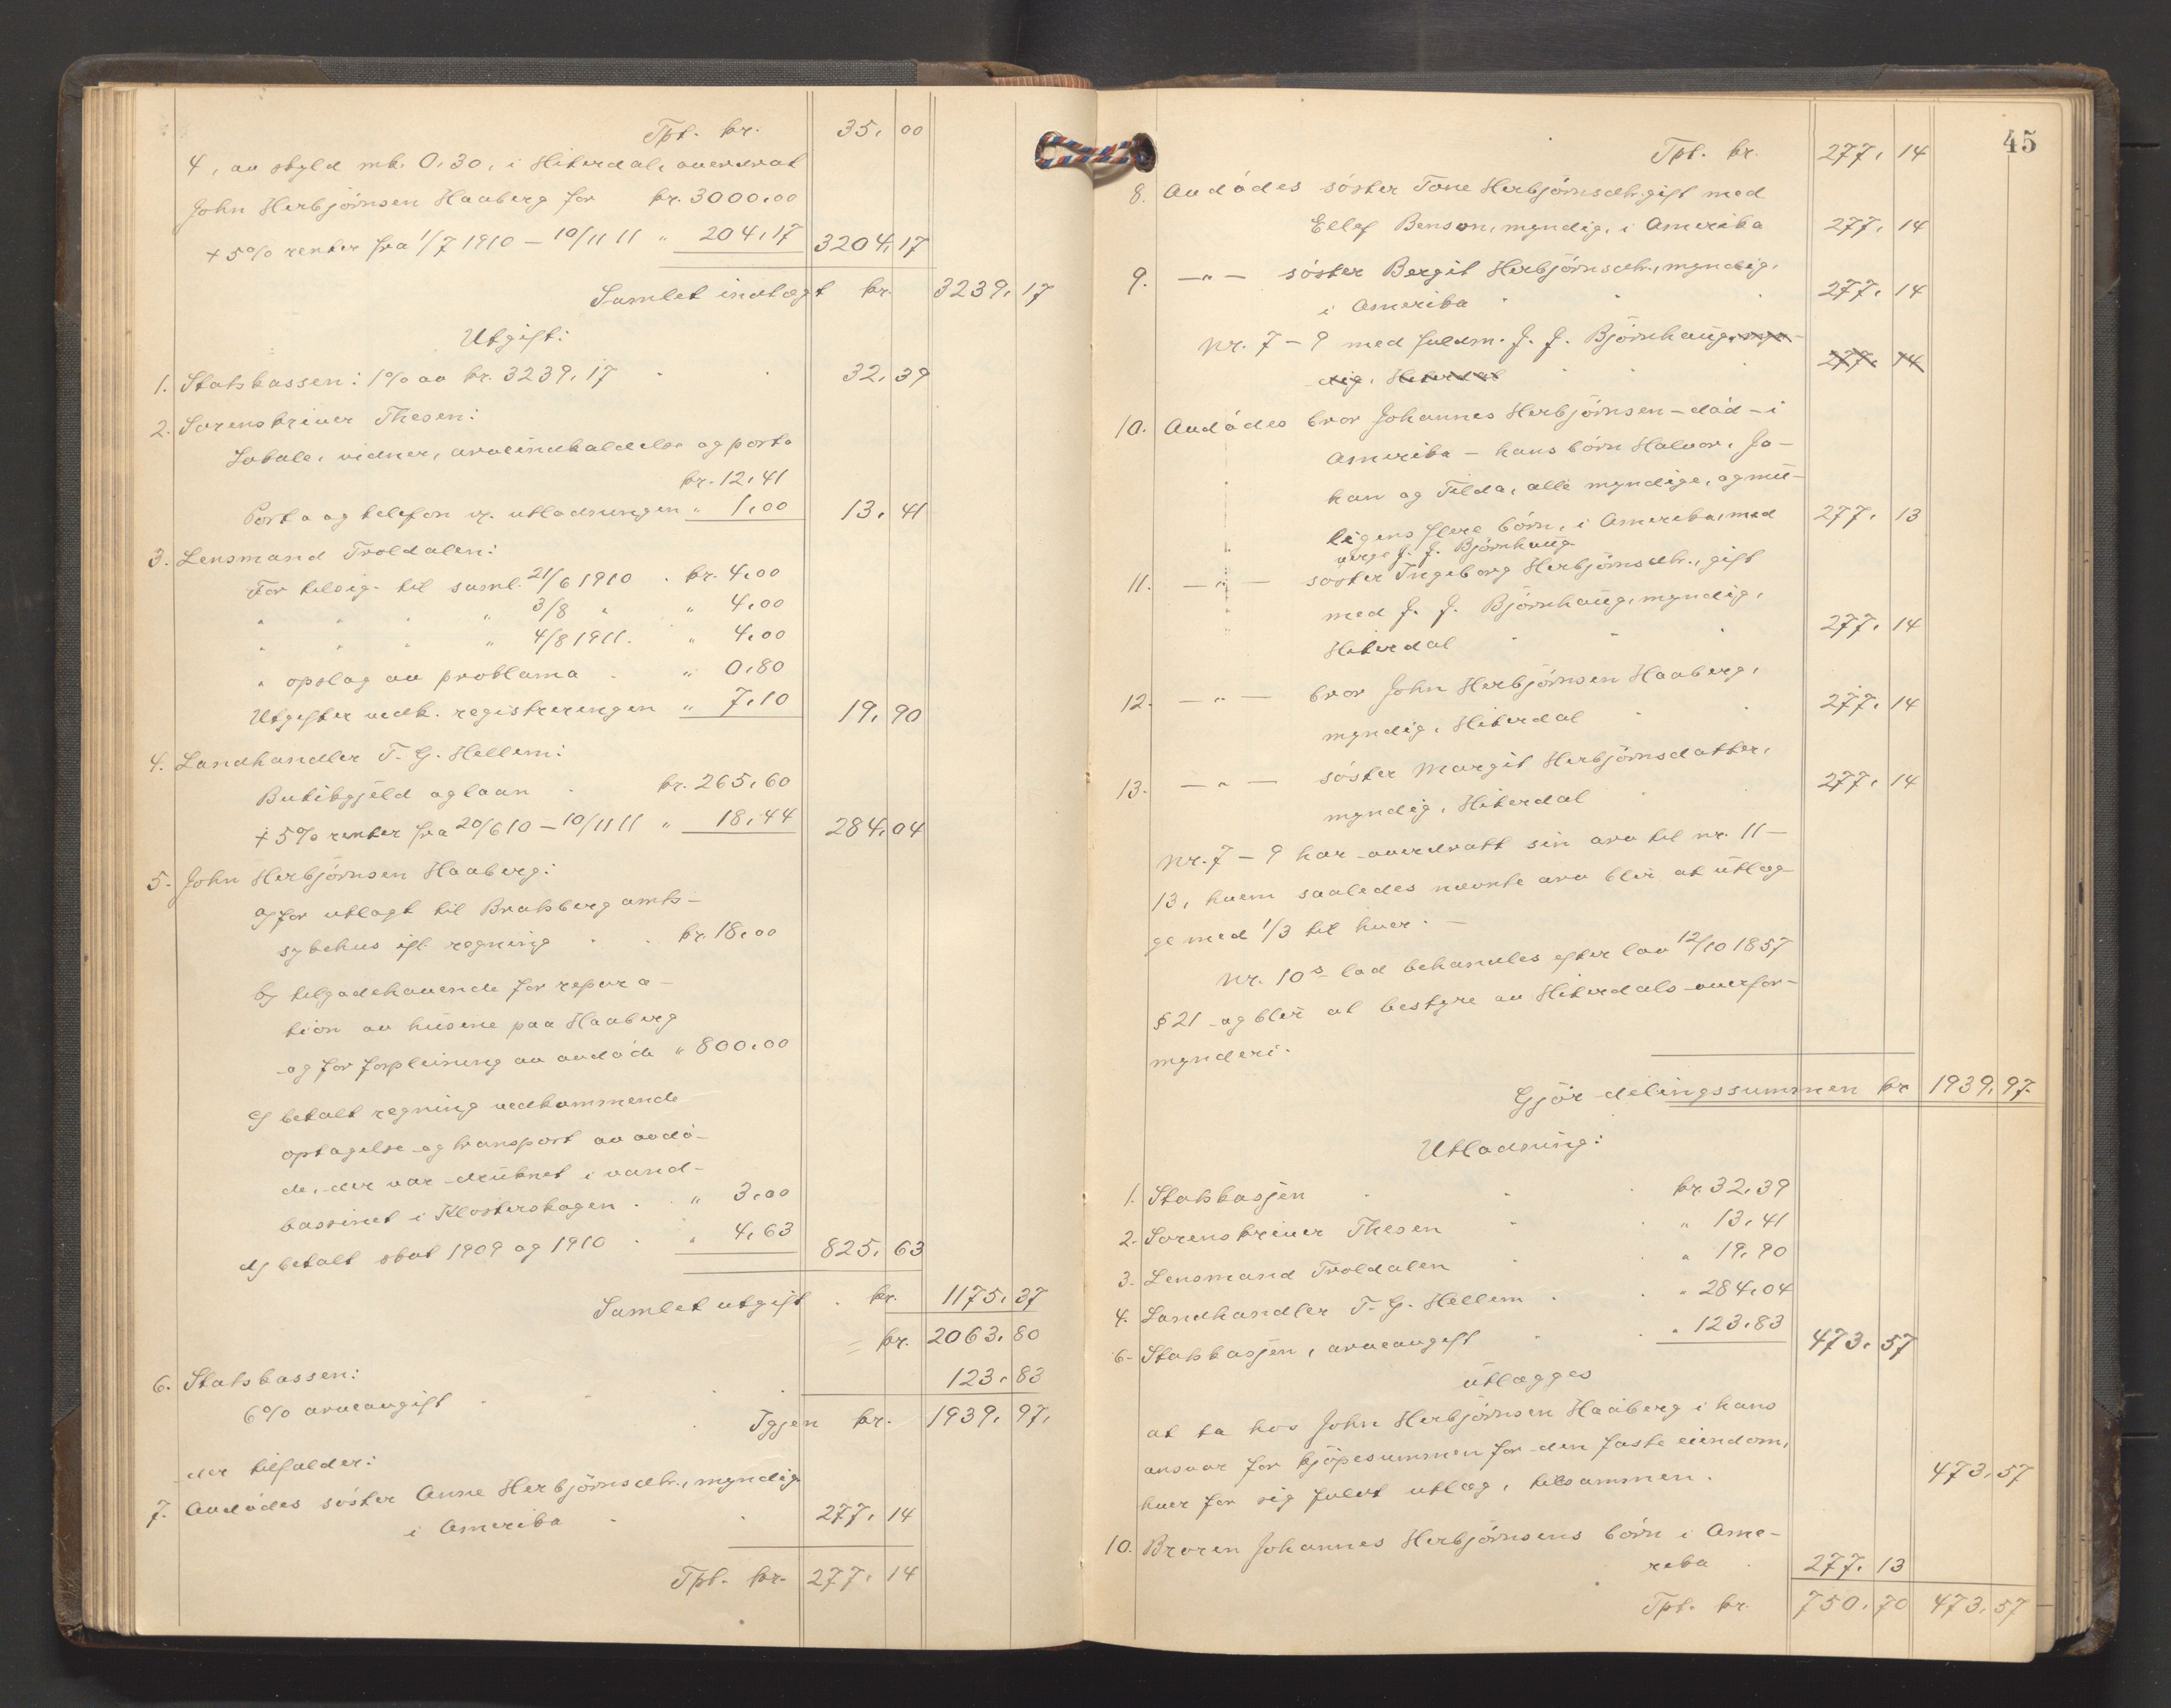 Tpt. kr. 35,00
4, av skyld mk. 0,30, i Hiterdal, overdrat
John Herbjörnsen Haaberg for kr. 3000,00
+ 5% renter fra 1/7 1910 – 10/11 11 " 204,17 3204,17
Samlet indtægt kr. 3239,17
Utgift:
1. Statskassen: 1% av kr. 3239,17 32,39
2. Sorenskriver Thesen:
Lokale, vidner, arveindkaldelse og porto
kr. 12,41
Porto og telefon v. utlodningen " 1,00 13,41
3. Lensmand Troldalen:
For tilsig. til saml. 21/6 1910 . kr. 4,00
" " " " 3/8 " " 4,00
" " " " 4/8 1911. " 4,00
" opslag av proklama . " 0,80
Utgifter vedk. registreringen " 7,10 19,90
4. Landhandler T. G. Hellem:
Butikgjæld og laan . kr. 265,60
+ 5% renter fra 20/6 10 – 10/11 11 " 18,44 284,04
5. John Herbjörnsen Haaberg:
a) for utlagt til Bratsberg amts-
sykehus ifl. regning . . kr. 18,00
b) tilgodehavende for repara-
tion av husene paa Haaberg
og for forpleining av avdöde " 800,00
c) betalt regning vedkommende
optagelse og transport av avdö-
de, der var druknet i vand-
bassinet i Klosterskogen . " 3,00
d) betalt skat 1909 og 1910 . " 4,63 825,63
Samlet utgift . kr. 1175,37
= kr. 2063,80
6. Statskassen:
6% arveavgift . . . . 123,83
Igjen kr. 1939,97.
der tilfalder:
7. Avdödes söster Anne Herbjörnsdtr., myndig
i Amerika . . 277,14
Tpt. kr. 277,14
45
Tpt. kr. 277,14
8. Avdödes söster Tone Herbjörnsdtr. gift med
Ellef Benson, myndig, i Amerika 277,14
9. — " — söster Bergit Herbjörnsdtr., myndig,
i Amerika . . . 277,14
Nr. 7 – 9 med fuldm. J. J. Björnhaug, myn-
dig, Hiterdal . . 277,14
10. Avdödes bror Johannes Herbjörnsen – död – i
Amerika – hans börn Halvor, Jo-
han og Tilda, alle myndige, og mu-
ligens flere börn, i Amerika, med 277,13
verge J. J. Björnhaug
11. — " — söster Ingeborg Herbjörnsdtr., gift
med J. J. Björnhaug, myndig,
Hiterdal . . . 277,14
12. — " — bror John Herbjörnsen Haaberg,
myndig, Hiterdal . . 277,14
13. — " — söster Margit Herbjörnsdatter,
myndig, Hiterdal . . 277,14
Nr. 7 – 9 har overdratt sin arv til nr. 11 –
13, hvem saaledes nævnte arv blir at utlæg-
ge med 1/3 til hver. —
Nr. 10s lod behandles efter lov 12/10 1857
§ 21 og blir at bestyre av Hiterdals overfor-
mynderi.
Gjör delingssummen kr 1939,97.
Utlodning:
1. Statskassen . . . kr. 32,39
2. Sorenskriver Thesen . . " 13,41
3. Lensmand Troldalen . . " 19,90
4. Landhandler T. G. Hellem . . " 284,04
6. Statskassen, arveavgift . . " 123,83 473,57
utlægges
at ta hos John Herbjörnsen Haaberg i hans
ansvar for kjöpesummen for den faste eiendom,
hver for sig fuldt utlæg, tilsammen . 473,57
10. Broren Johannes Herbjörnsens börn i Ame-
rika . 277,13
Tpt. kr. 750,70 473,57